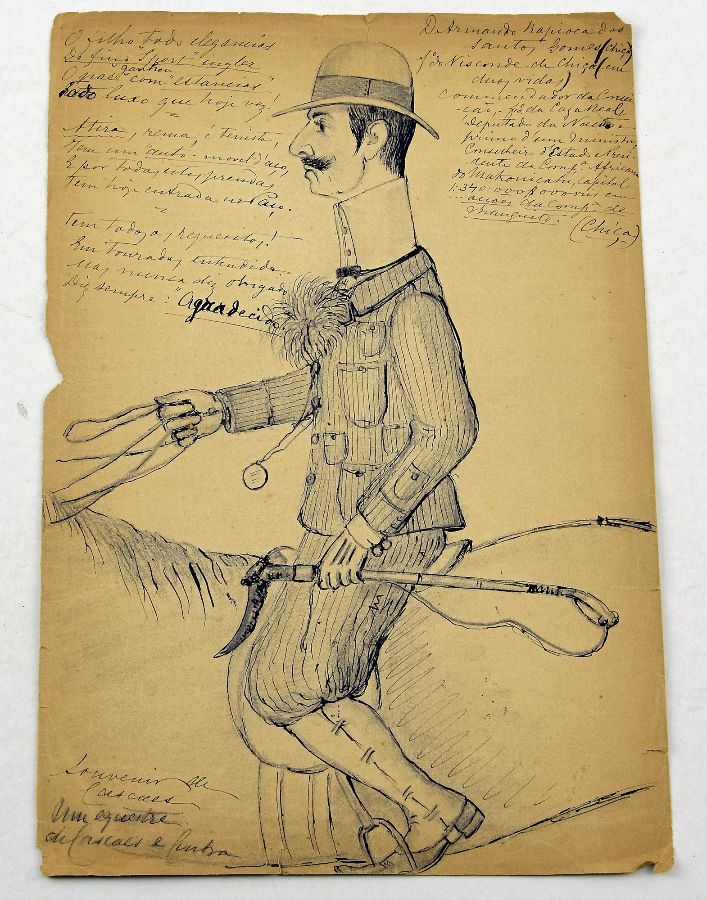 O filho todo elegancias
Do fino "Sport" inglez
O pae ganhou com "estancias"
todo luxo que hoje vez!
Atira, rema, é tenista,
Tem um "auto-movel d'aço
E por todas estas prendas
Tem hoje entrada no Paço.
Tem todos os requesitos!
Em touradas entendido
Mas nunca diz obrigado
Diz sempre: "Agradecido
D. Armando Rapioca dos
Santos Gomes (Chiça)
1º do Visconde de Chiça (em
duas vidas)
Commendador da Concei-
cai, da Caza Real,
Deputado da Nação e
primo d'um Ministro
Conselheiro d'Estado e Presi-
dente da Compª Africana
do Makonicatu, capital
1:340.000$000 réis em
accões da Compª do
(Chiça)
Souvenir de
Cascaes
Um equestre
de Cascaes e Cintra